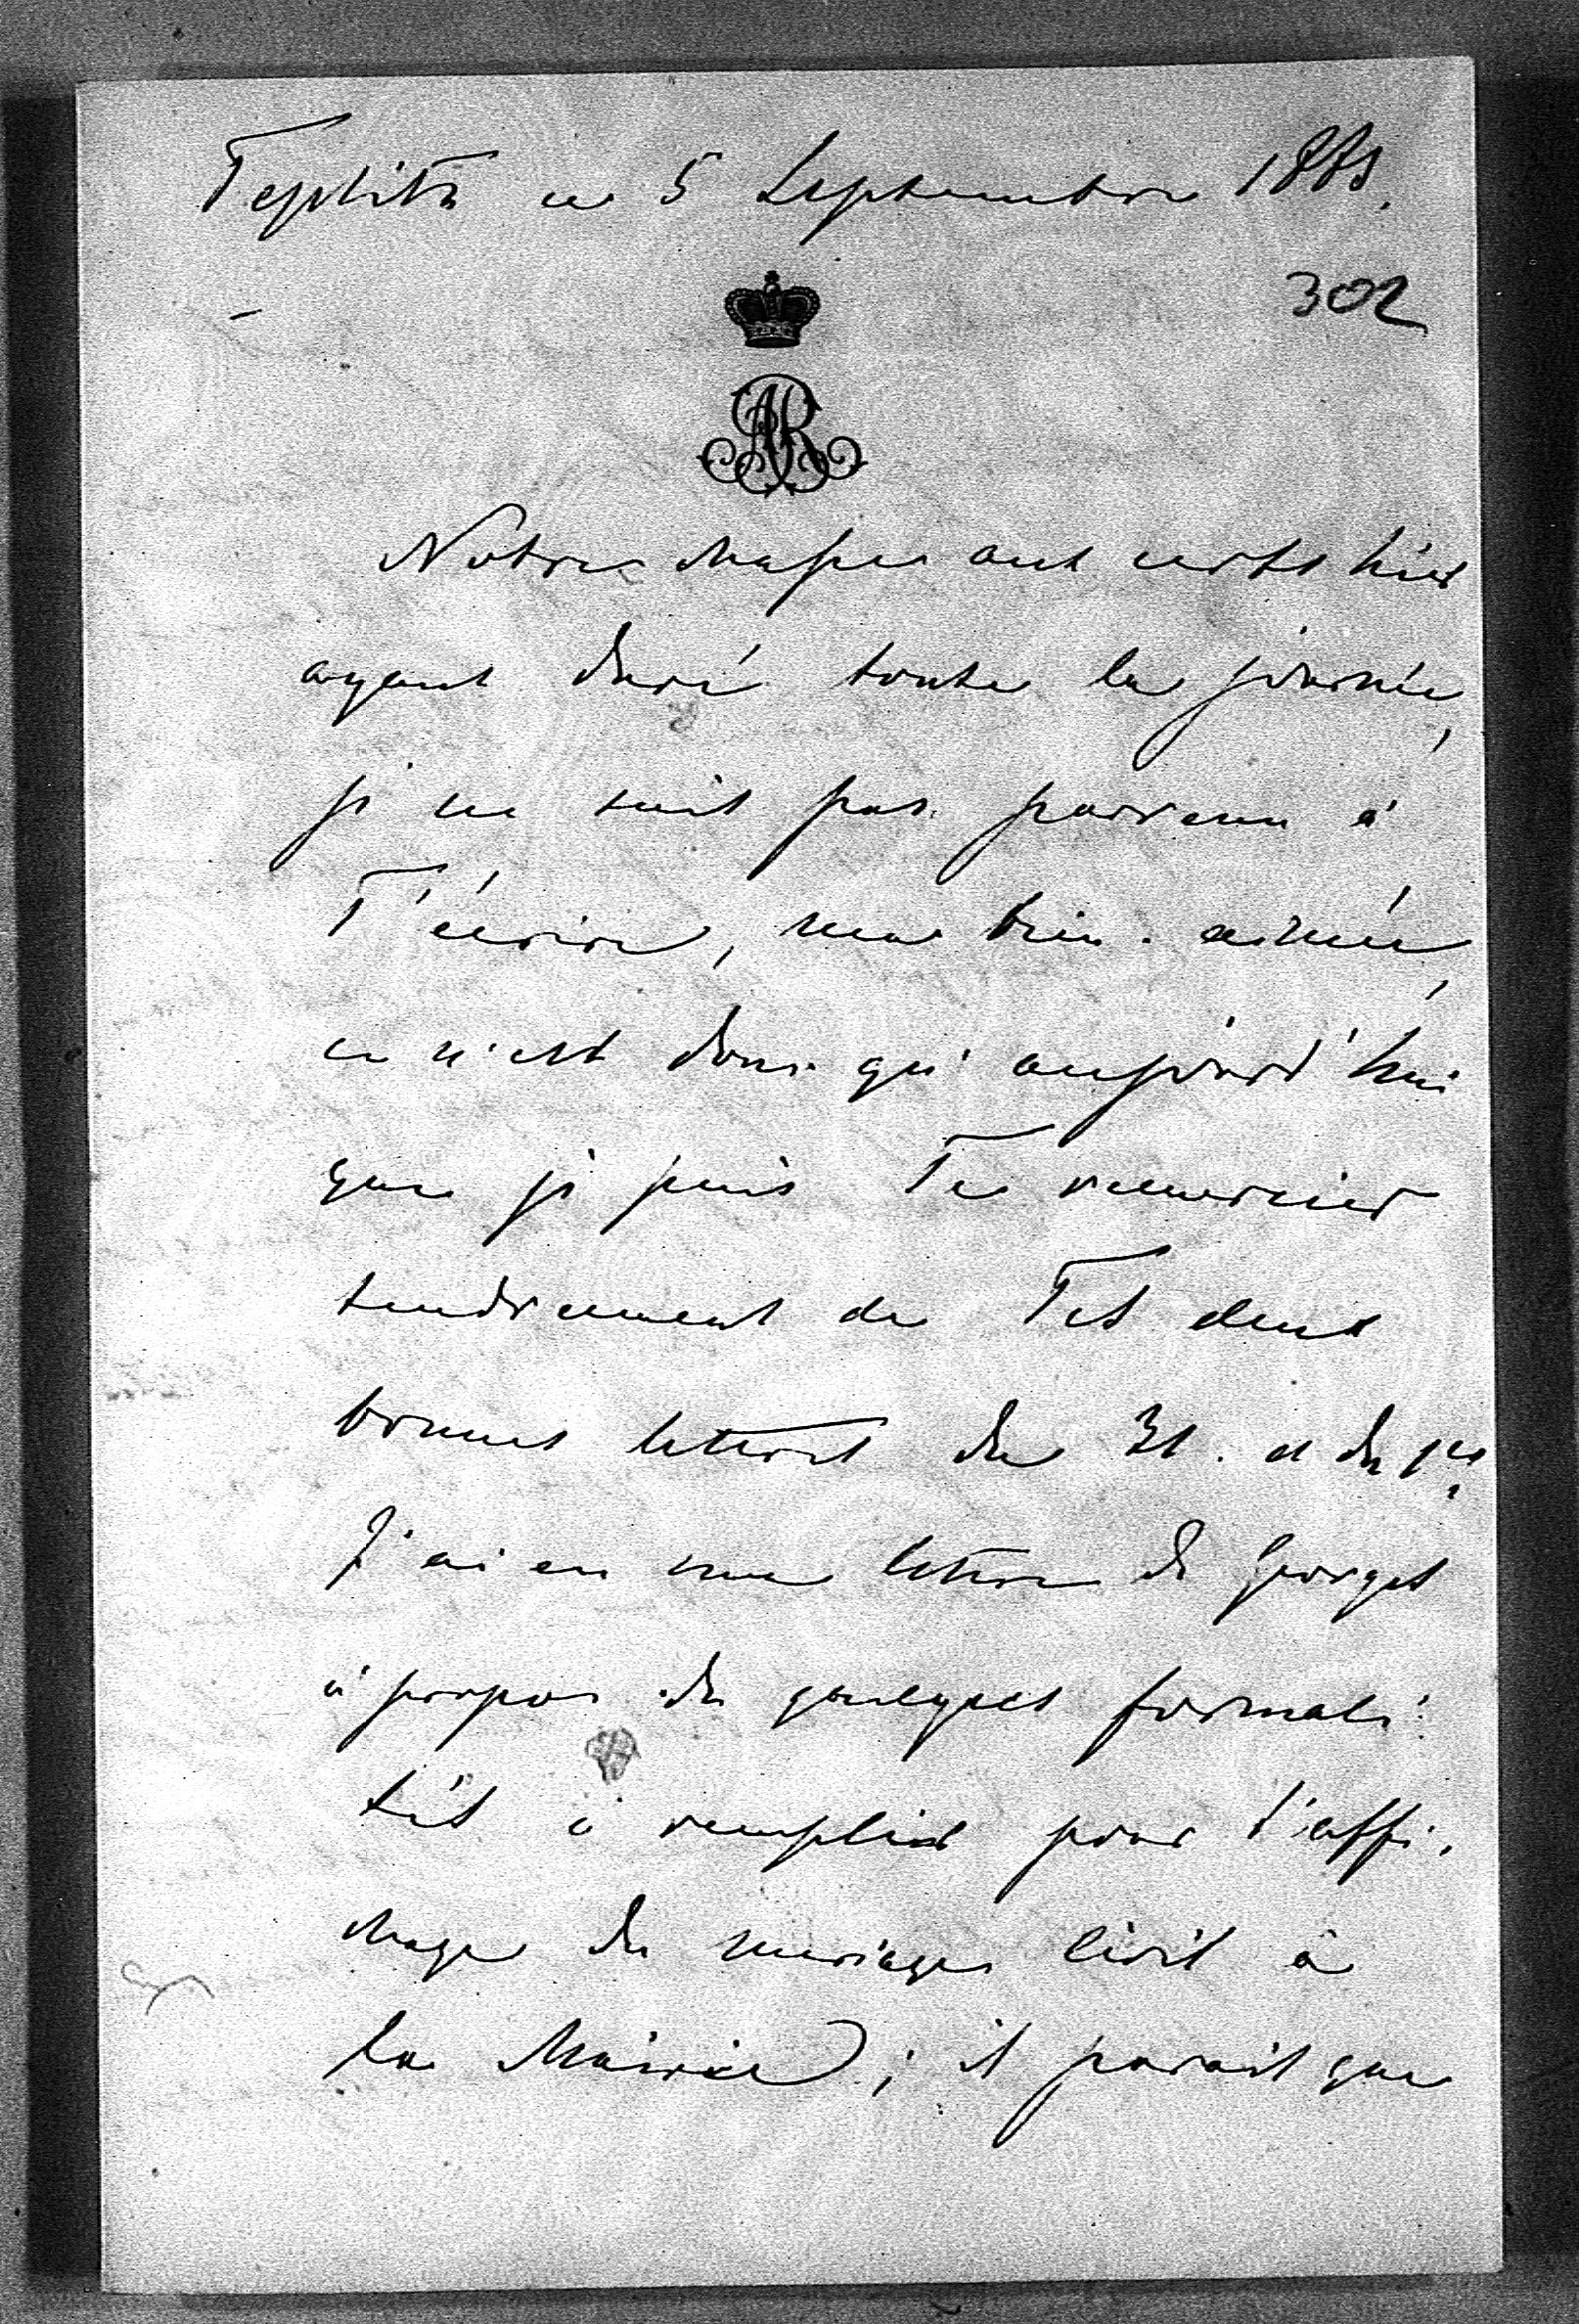 Teplitz ce 5 Septembre 1885.
302
AR
Notre chasse aux cerfs hier
ayant duré toute la journée,
je ne suis pas parvenu à
T'écrire, ma bien-aimée,
ce n'est donc qu'aujourd'hui
que je puis Te remercier
tendrement de Tes deux
bonnes lettres du 31. et du 1er.
J'ai eu une lettre de Georges
à propos de quelques formali-
tés à remplir pour l'affi-
chage du mariage civil à
la Mairie; il parait que